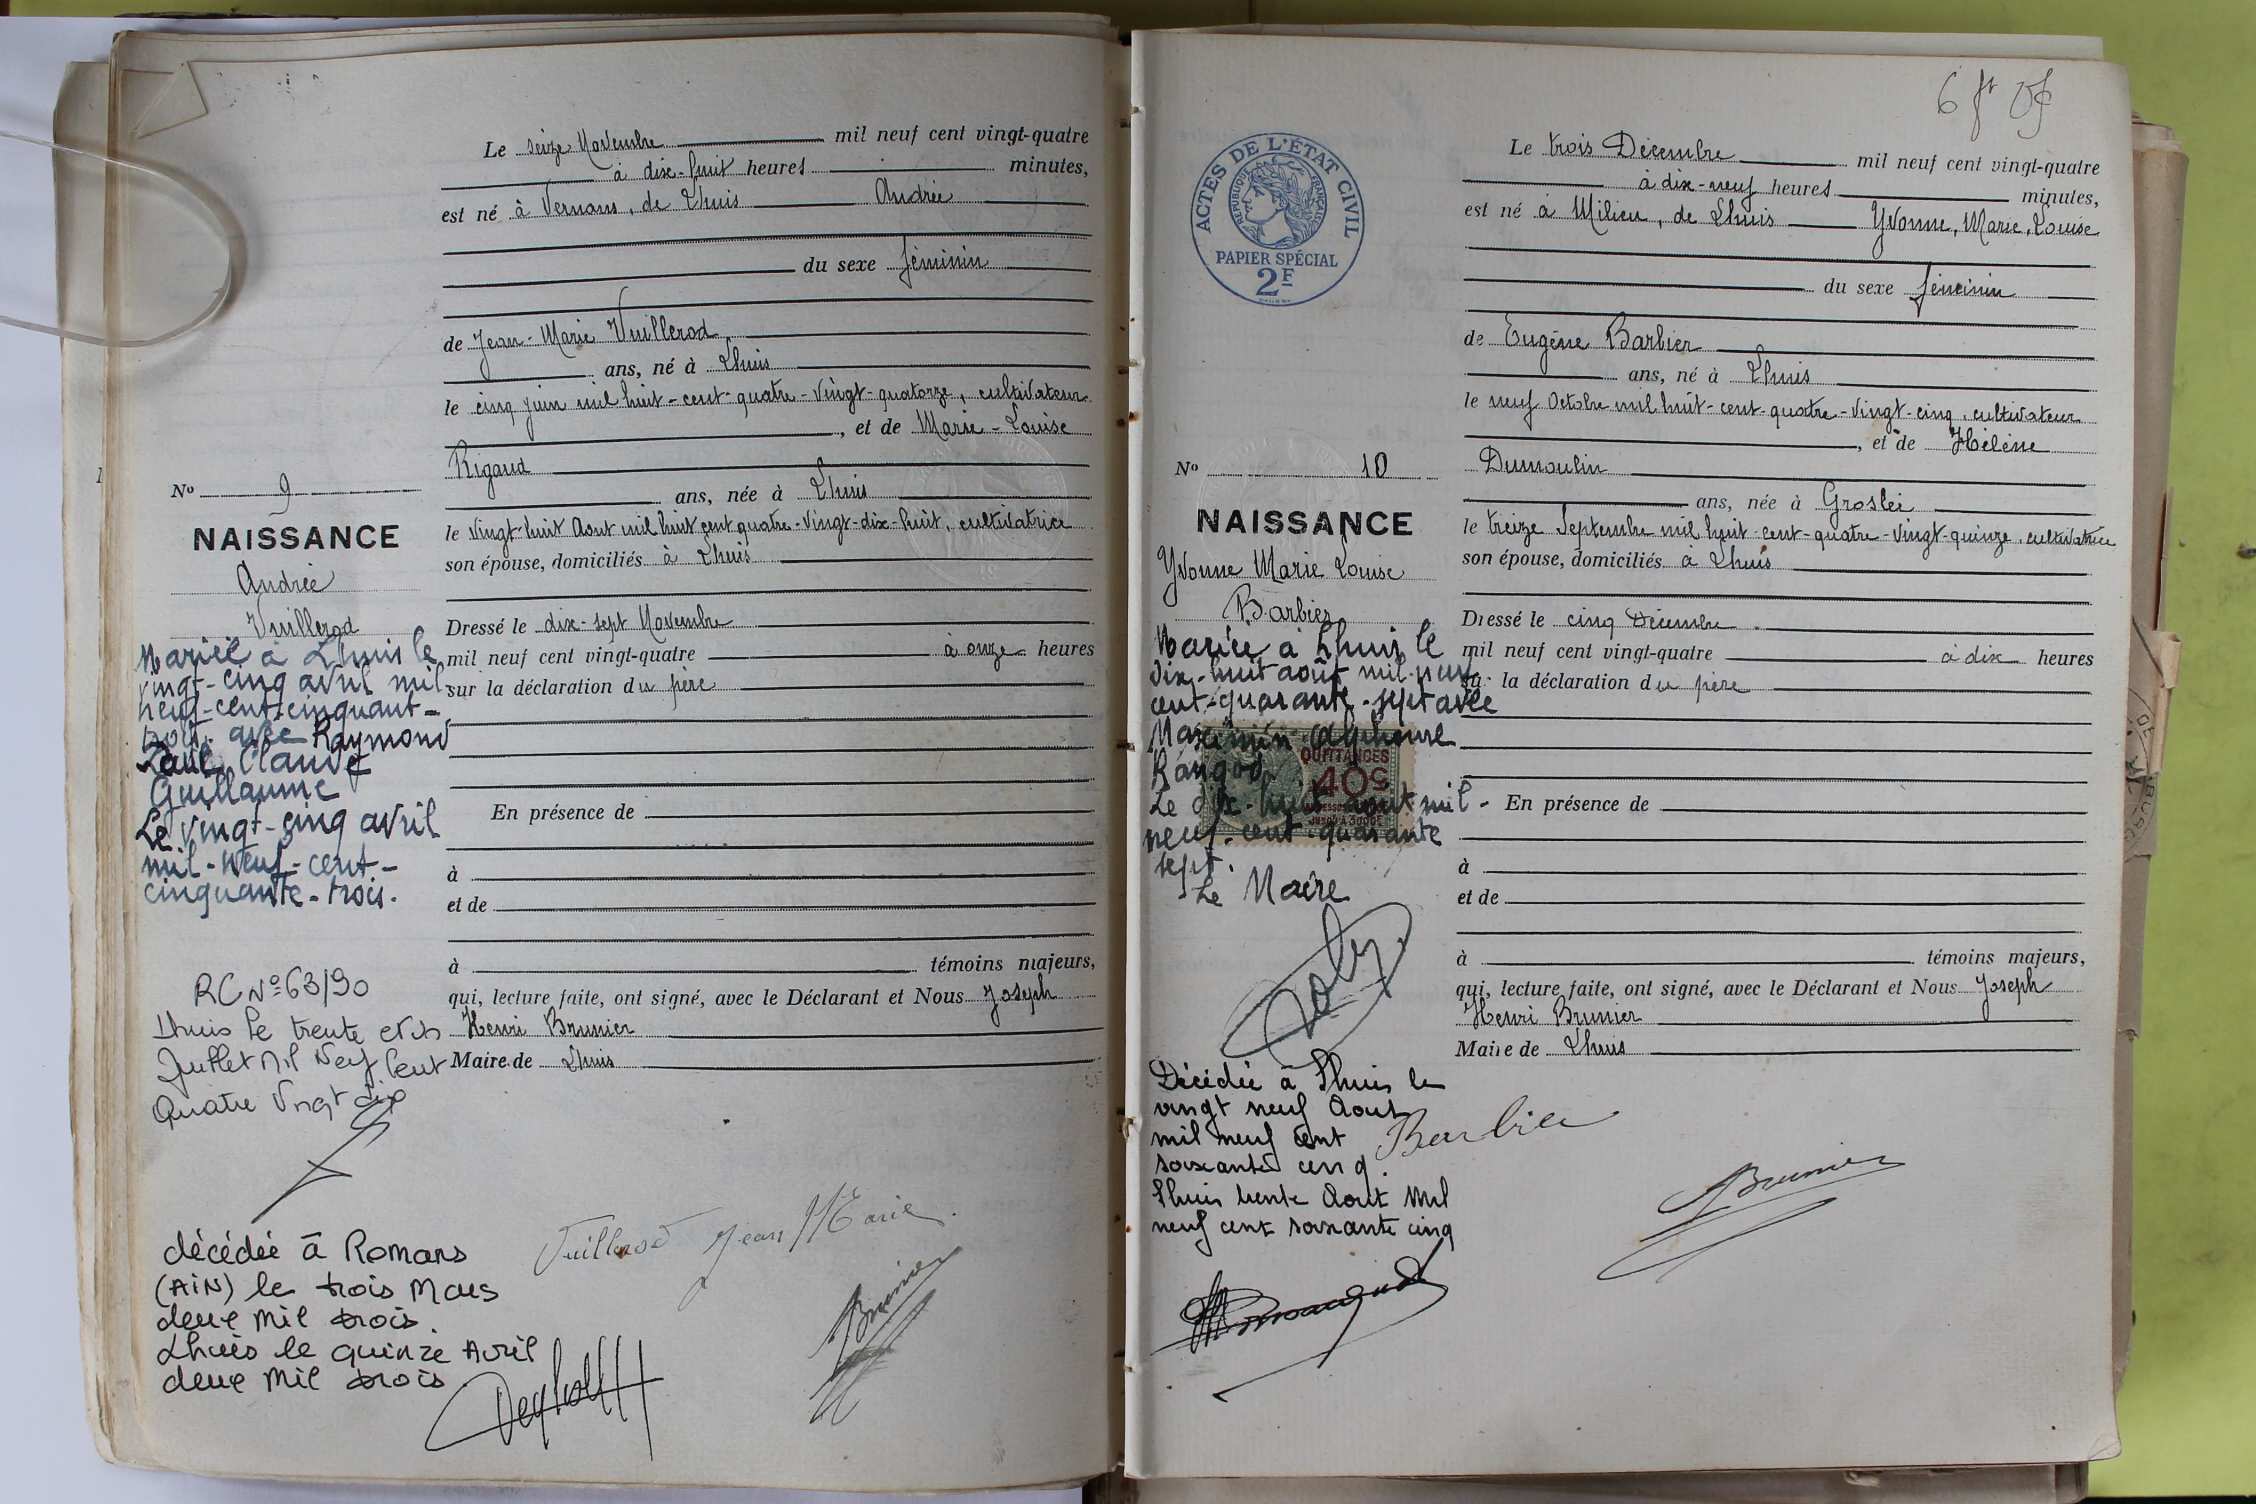 Le seize Novembre mil neuf cent vingt-quatre
à dix-huit heures minutes,
est né à Vernans, de Lhuis Andrée
du sexe féminin
de Jean-Marie Vuillerod
ans, né à Lhuis
le cinq juin mil huit-cent-quatre-vingt-quatorze, cultivateur
, et de Marie-Louise
Rigaud
ans, née à Lhuis
le vingt-huit Aout mil huit cent quatre-vingt-dix-huit, cultivatrice
son épouse, domiciliés à Lhuis
Dressé le dix-sept Novembre
mil neuf cent vingt-quatre à onze heures
sur la déclaration du père
En présence de
à
et de
à témoins majeurs,
qui, lecture faite, ont signé, avec le Déclarant et Nous Joseph
Henri Brunier
Maire de Lhuis
Vuillerod Jean Marie
Brunier
No 9
NAISSANCE
Andrée
Vuillerod
Mariée à Lhuis le
vingt-cinq avril mil
neuf-cent-cinquant-
trois avec Raymond
Paul Claude
Guillaume
Le vingt-cinq avril
mil-neuf-cent-
cinquante-trois.
RC No 63/90
Lhuis le trente et un
Juillet Mil Neuf Cent
Quatre Vingt dix
décédée à Romans
(AIN) le trois Mars
deux mil trois
Lhuis le quinze Avril
deux mil trois
6
ACTES DE L'ÉTAT CIVIL
RÉPUBLIQUE FRANÇAISE
PAPIER SPÉCIAL
2F
Le trois Décembre mil neuf cent vingt-quatre
à dix-neuf heures minutes,
est né à Milieu, de Lhuis Yvonne, Marie, Louise
du sexe féminin
de Eugène Barbier
ans, né à Lhuis
le neuf Octobre mil huit-cent-quatre-vingt-cinq, cultivateur
, et de Hélène
Dumoulin
ans, née à Groslei
le treize Septembre mil huit-cent-quatre-vingt-quinze, cultivatrice
son épouse, domiciliés à Lhuis
Dressé le cinq Décembre
mil neuf cent vingt-quatre à dix heures
sur la déclaration du père
En présence de
à
et de
à témoins majeurs,
qui, lecture faite, ont signé, avec le Déclarant et Nous Joseph
Henri Brunier
Maire de Lhuis
Barbier
Brunier
No 10
NAISSANCE
Yvonne Marie Louise
Barbier
Mariée à Lhuis le
dix-huit août mil-neuf
cent-quarante-sept avec
Maximin Alphonse
QUITTANCES
40c
Le dix-huit août mil-
neuf-cent-quarante
sept.
Le Maire
Décédée à Lhuis le
vingt neuf Aout
mil neuf cent
soixante cinq.
Lhuis trente Aout Mil
neuf cent soixante cinq